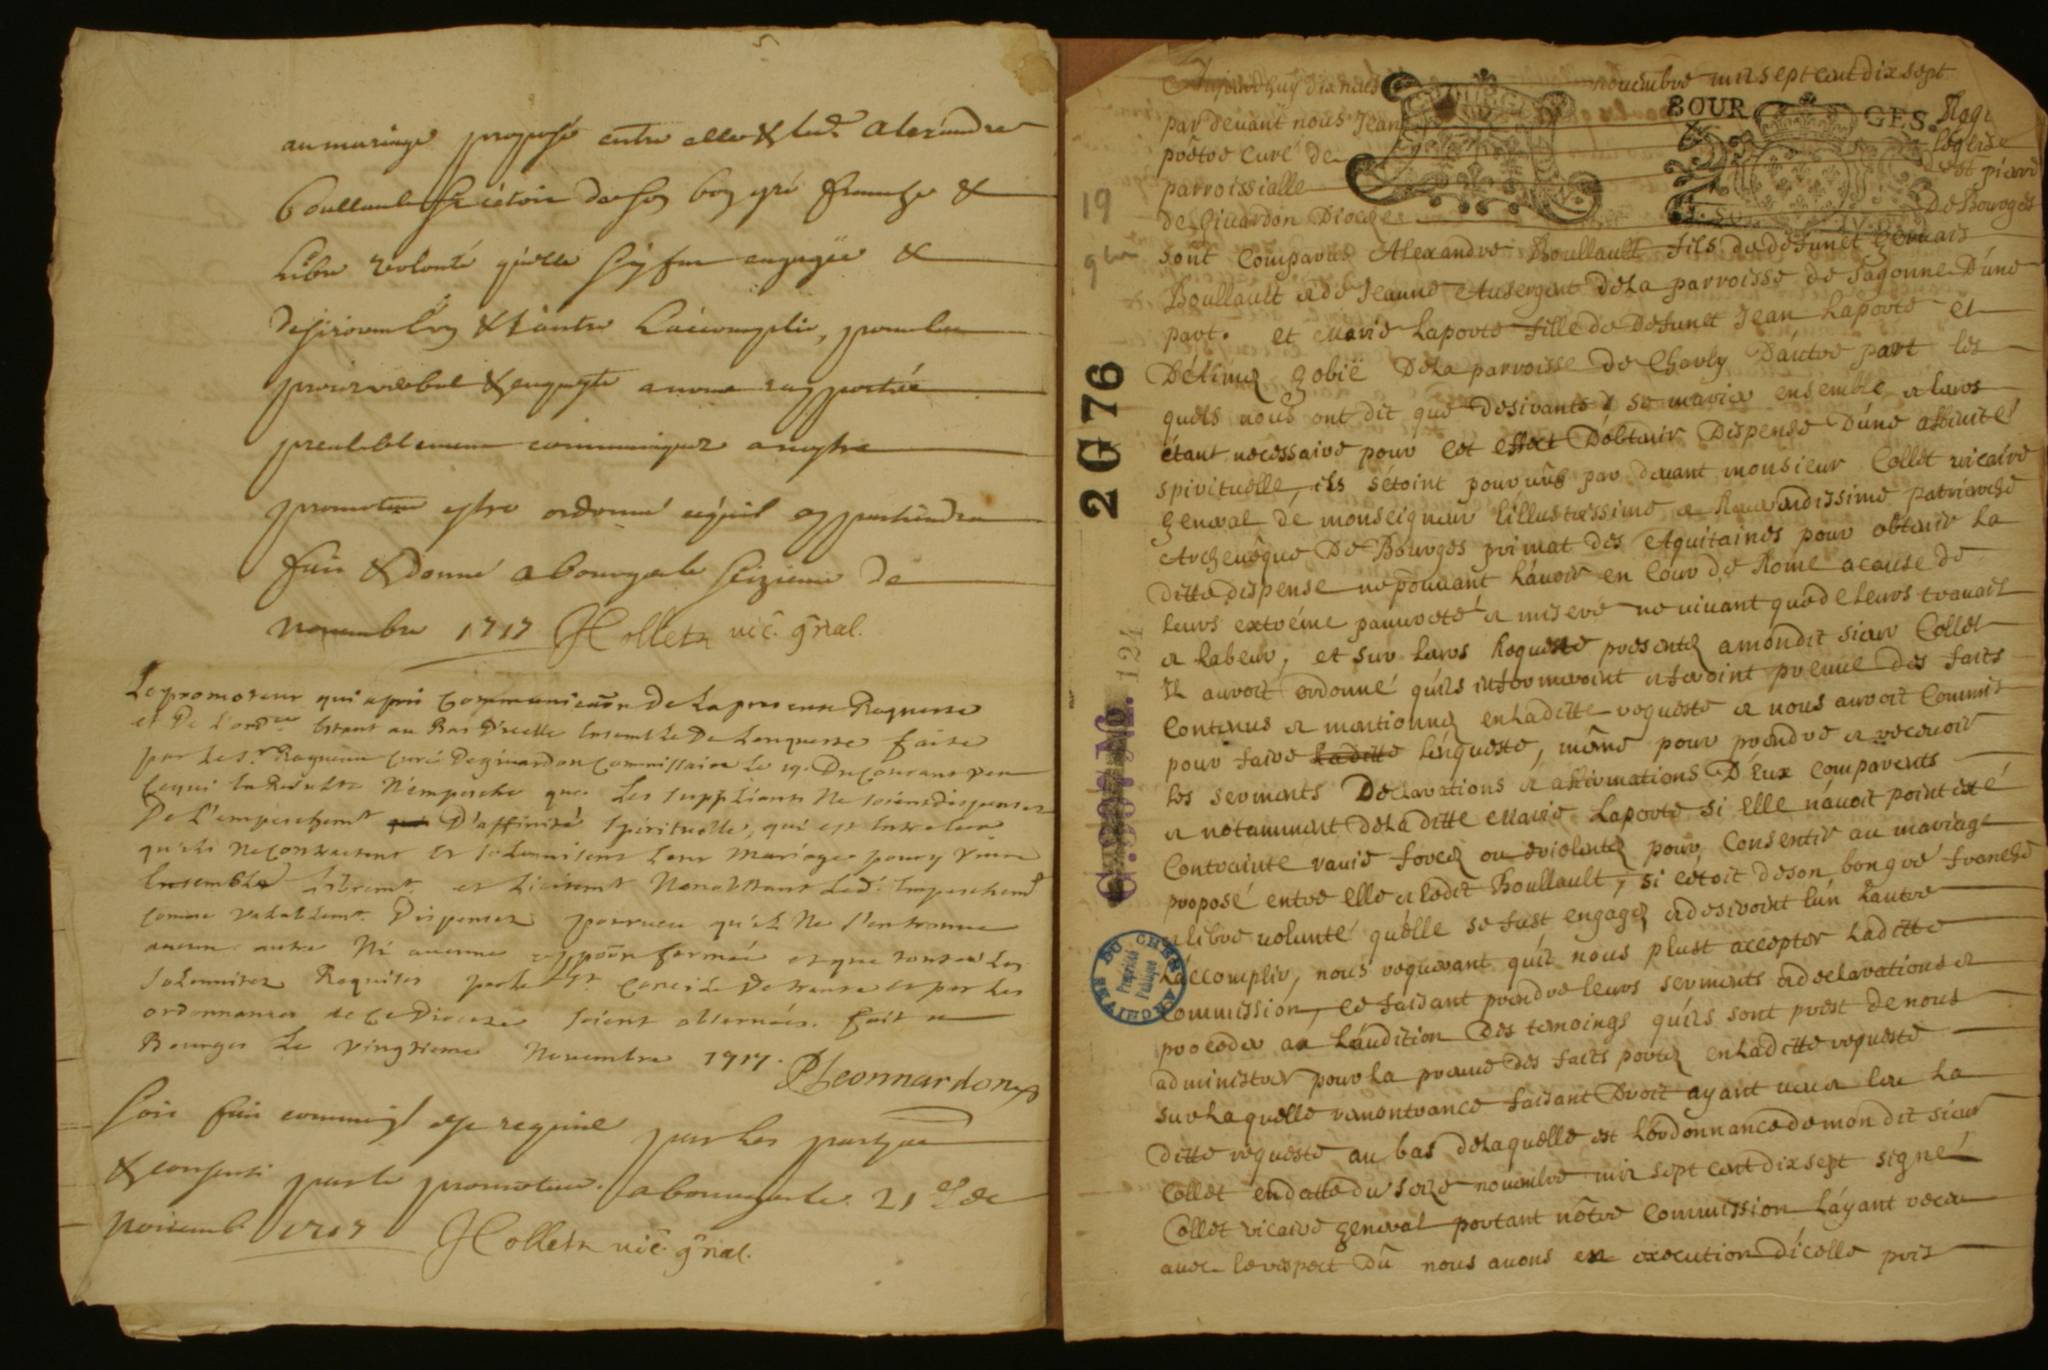 au mariage proposé entre elle & led. Alexandre
Boullault si cétoit de son bon gré franche &
libre volonté qu'elle sy fut engagée &
desiroient l'un & l'autre l'accomplir, pour le
procez verbal & enqueste a nous rapportée
prealablement communiquez a nostre
promoteur estre ordonné ce qu'il appartiendra
fait & donné a Bourges le seizieme de
novembre 1717 Collet vic. gñal.
Le promoteur qui a pris communicaõn De la presente Requeste
et De l'ordce Estant au Bas D'icelle Ensemble De l'enqueste faite
par le Sr Ragueau Curé De givardon Commissaire le 19e Du Courant veu
Ce qui En Resulte N'empesche que Les supplians Ne soient dispensez
De L'empeschemt D'affinité spirituelle, qui est Entre eux
qu'ils ne contractent et solennisent leur mariage pour y vivre
Ensemble libremt et licitemt Nonobstant Led. Empeschemt
comme valablemt Dispensez pourveu qu'il Ne s'en trouve
aucun autre Ni aucune oppõn formée et que toutes les
solennitez Requises par le St Concile De trente et par les
ordonnances de ce Diocese soient observées. fait a
Bourges Le vingtieme Novembre 1717.
PLeonnardon
Soit fait comme il est requis par les parties
& consenti par le promoteur. a bourges le 21e de
novemb. 1717 Collet vic. gñal.
Aujourdhuy dix neuf novembre mil sept cent dix sept
BOUR GES.
par devant nous Jean Rag
prêtre Curé de l'église
parroissialle de st pierre
de Givardon Diocese De Bourges
19
9bre
sont Comparus Alexandre Boullault fils de défunct Gervais
Boullault et de Jeanne Ausergent de la parroisse de Sagonne D'une
part. et Marie Laporte fille de Defunct Jean Laporte et
De Gobié De la parroisse de Charly D'autre part les
quels nous ont dit que desirants se marier ensemble, et leurs
étant necessaire pour cet effect D'obtenir Dispense D'une afinité
spirituelle, ils s'étoint pourvûs par devant monsieur Collet vicaire
General de monseigneur l'illustrissime et Reverendissime patriarche
Archevêque De Bourges primat des Aquitaines pour obtenir la
ditte dispense ne pouvant l'avoir en Cour de Rome a cause de
leurs extréme pauvreté et misere ne vivant que de leurs travail
et labeur, et sur leurs Requeste presentez a mondit sieur Collet
Il auroit ordonné qu'ils informeroint et feroint preuve des faits
Contenus et mentionnez en la ditte requeste et nous auroit Commis
pour faire la ditte l'enqueste, même pour prendre et recevoir
les serments Declarations et afirmations D'Eux Comparents
et notamment de la ditte Marie Laporte si elle n'avoit point été
Contrainte ravie forcez ou violentez pour Consentir au mariage
proposé entre elle et ledit Boullault, si cétoit de son bon gré franche
et libre volonté qu'elle se fust engagez et desiroint l'un l'autre
l'accomplir, nous requerant qu'il nous plust accepter la ditte
Commission, ce faisant prendre leurs serments et declarations et
proceder a l'audition des temoings qu'ils sont prest de nous
administrer pour la preuve des faits portez en la ditte requeste
sur la quelle remontrance faisant Droit ayant veu et leu la
Ditte requeste au bas de laquelle est l'ordonnance de mon dit sieur
Collet en datte du seize novembre mil sept cent dix sept signé
Collet vicaire general portant nôtre Commission l'ayant receu
avec le respect Dû nous avons en execution d'icelle pris
2 G 76
124
ARCHIVES DU CHER
Propriété
Publique